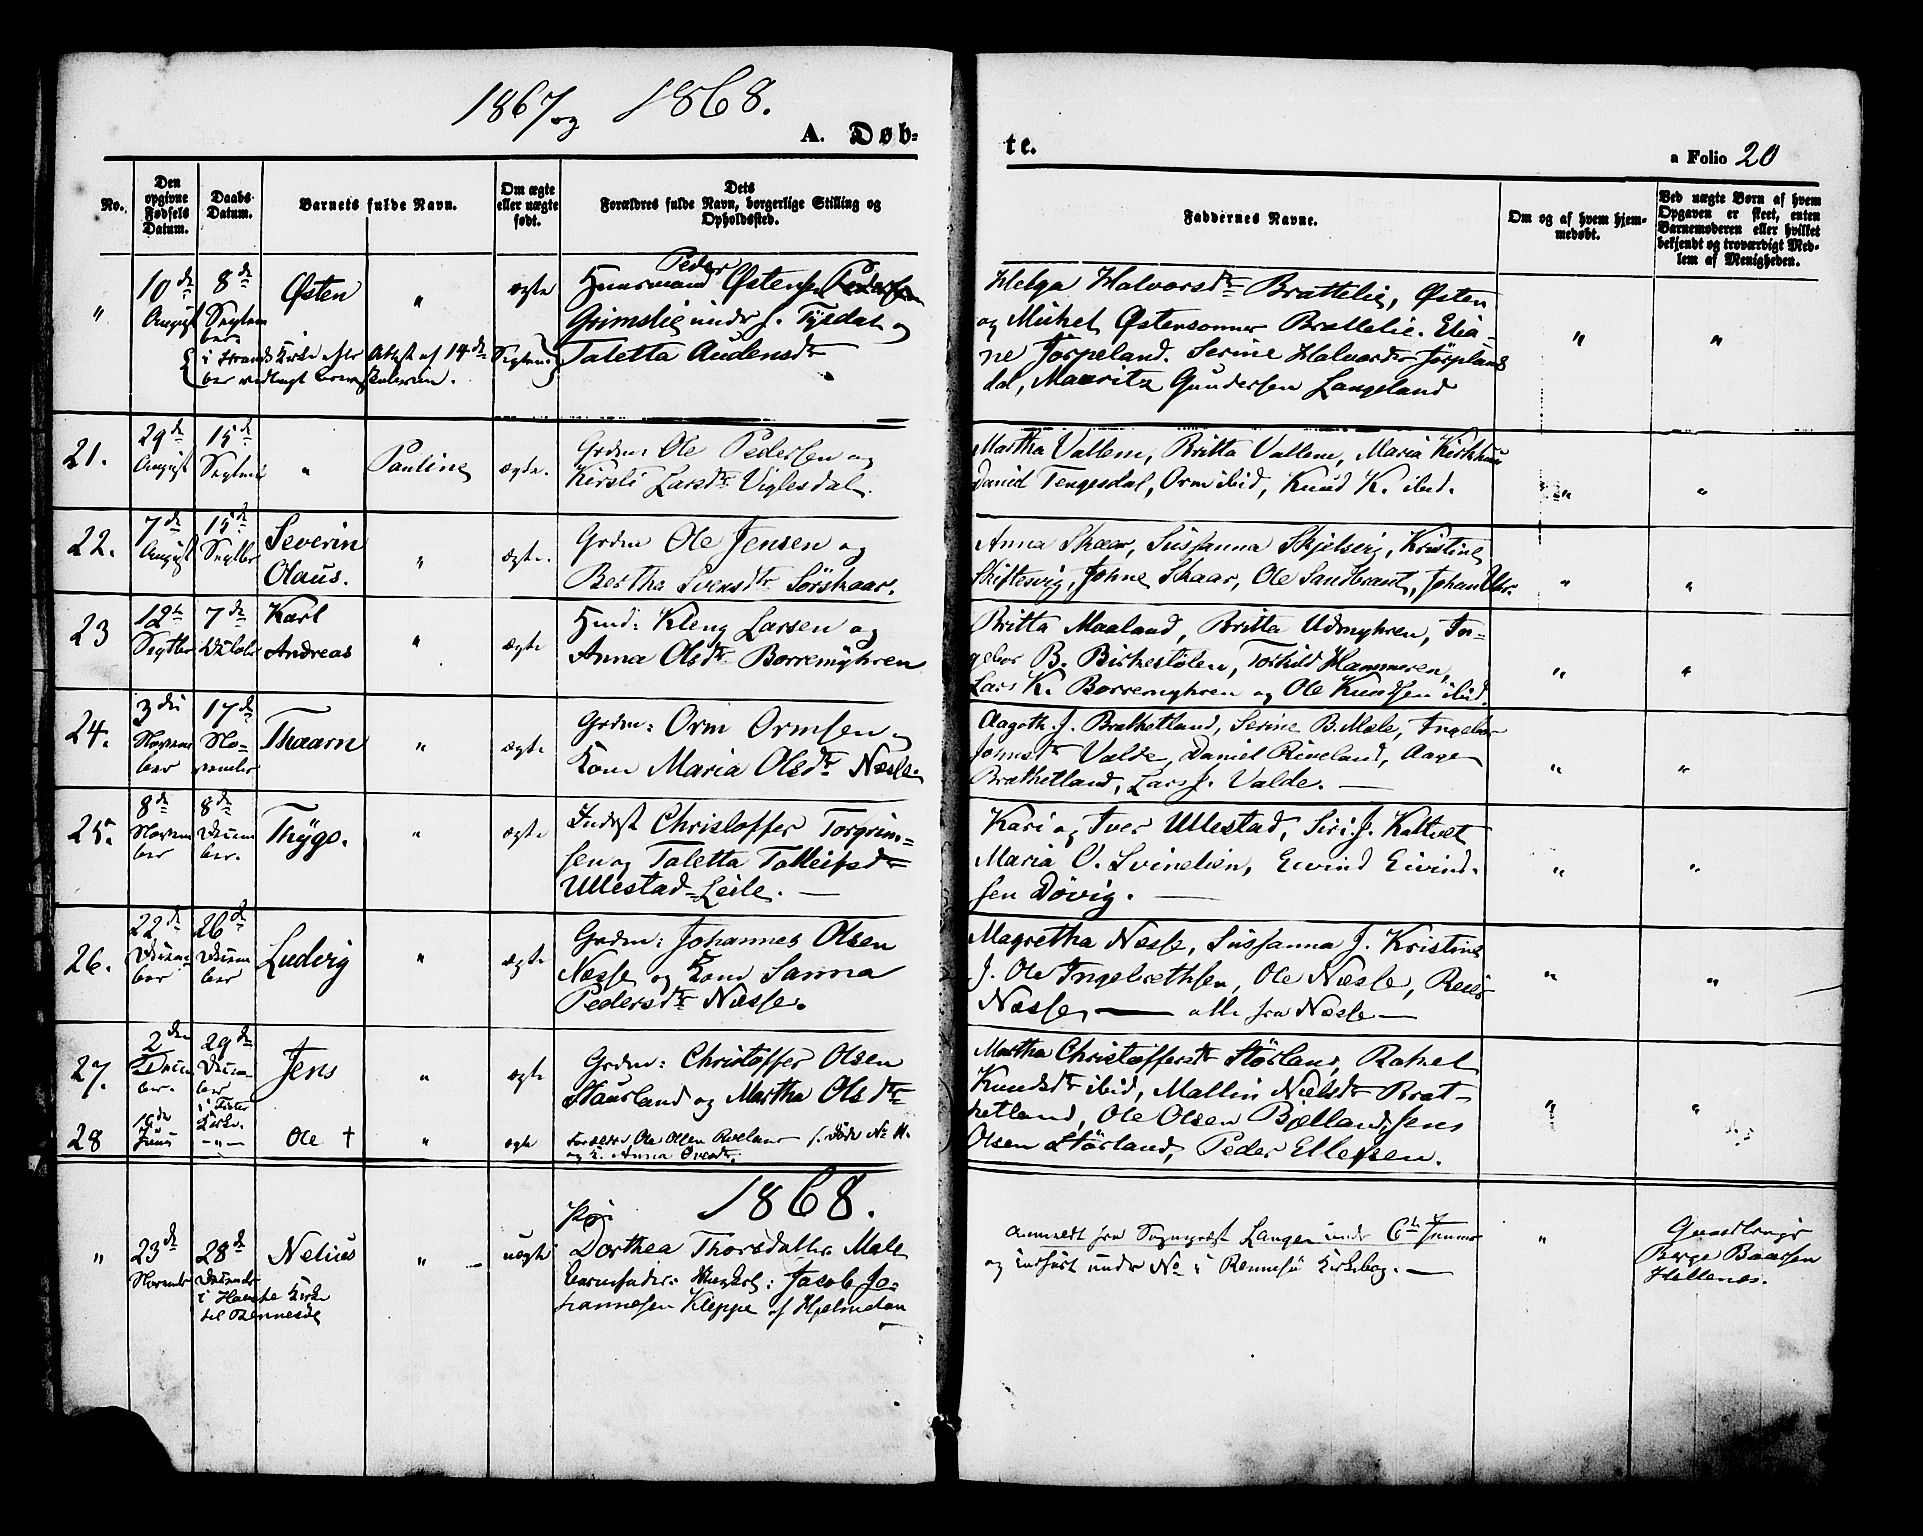 1867 og 1868.
A. Døb-
te.
a Folio 20
No.
Den opgivne Fødsels Datum.
Daabs Datum.
Barnets fulde Navn.
Om ægte eller uægte født.
Dets
Forældres fulde Navn, borgerlige Stilling og
Opholdssted.
Faddernes Navne.
Om og af hvem hjem-
medøbt.
Ved uægte Børn af hvem
Opgaven er skeet, enten
Barnemoderen eller hvilket
bekjendt og troværdigt Med-
lem af Menigheden.
" 10de August 8de Septem
ber Østen " ægte
Peder
Huusmand Østensen Pedersen
Grimslie under
Taletta Audensdtr
i Strands Kirke efter Attest af 14de Septem
ber vedlagt
Helga Halvorsdtr Brattelie, Østen
og Mikel Østensønner Brattelie. Elia-
ne Jørpeland. Serine Halvorsdtr Jørplands
dal, Mauritz Gundersen Langeland
" "
21. 29de August 15de Septem " Pauline ægte.
Grdm: Ole Pedersen og
Kirsti Larsdtr Viglesdal.
Martha Vallem, Britta Vallem, Maria Kirkhuus
Daniel Tengesdal, Orm ibid, Knud K. ibid.
" "
22. 7de August 15de Septbr Severin
Olaus. " ægte.
Grdm Ole Jensen og
Bertha Svensdtr Sørskaar.
Anna Skaar, Susanna Skjelvig, Kristine
Skiftesvig, Johne Skaar, Ole Sandbraut, Johan
" "
23 12te Septbr 7de Octobr Karl
Andreas " ægte
Husd: Kleng Larsen og
Anna Olsdtr Borremyhren
Britta Maaland, Britta Udmyhren, In-
gebor B. Birkestølen, Torkild Hammeren,
Lars K. Borremyhren og Ole Knudsen ibid.
" "
24. 3die Novem
ber 17de No-
vember Thaarn " ægte
Grdm: Orm Ormsen og
Kone Maria Olsdtr Næsse
Aagoth J. Brathetland, Serine B. Mæle, Ingebor
Johnsdtr Valde, Daniel Riveland, Aage
Brathetland, Lars J. Valde. —
" "
25. 8de Novem
ber 8de Decem
ber. Thygo. " ægte
Inderst Christoffer Torgrim-
sen og Taletta Tolleifsdtr
Ullestad-Leite. —
Kari og Iver Ullestad, Siri J. Kaltvet
Maria O. Svinelien, Eivind Eivind-
sen Døvig. —
" "
26. 22de Decem
ber 26de Decem
ber Ludvig " ægte
Grdm: Johannes Olsen
Næsse og Kone Sanna
Pedersdtr Næsse.
Magretha Næsse, Susanna J. Kristine
J. Ole Ingebrethsen, Ole Næsse, Reier
Næsse — alle fra Næsse —
" "
27. 2den Decem
ber. 29de Decem-
ber
i Fister
Kirke. Jens " ægte
Grdm: Christoffer Olsen
Staurland og Martha Olsdtr
Martha Christoffersdtr Størland, Rakel
Knudsdtr ibid, Mallin Nielsdtr Brat-
hetland, Ole Olsen Bjelland, Jens
Olsen Størland, Peder Ellefsen.
" "
28 16de Juni — " — Ole † " ægte
Forældre Ole Olsen Riveland f. Døde No 11.
og K. Anna Ovesdtr.
1868.
" 23de Novembr 28de Decembr
i Hauske Kirke
til Rennesøe Nelius " uægte
Pige
Dorthea Thorsdatter Mæle
barnefader: Ungkarl: Jacob Jo-
hannesen Kleppe af Hjelmeland
anmeldt fra Sognepræst Langen under 6te Januar
og indført under No i Rennesø Kirkebog. —
"
Gaardbruger
Berge Baarsen
Hellenes.